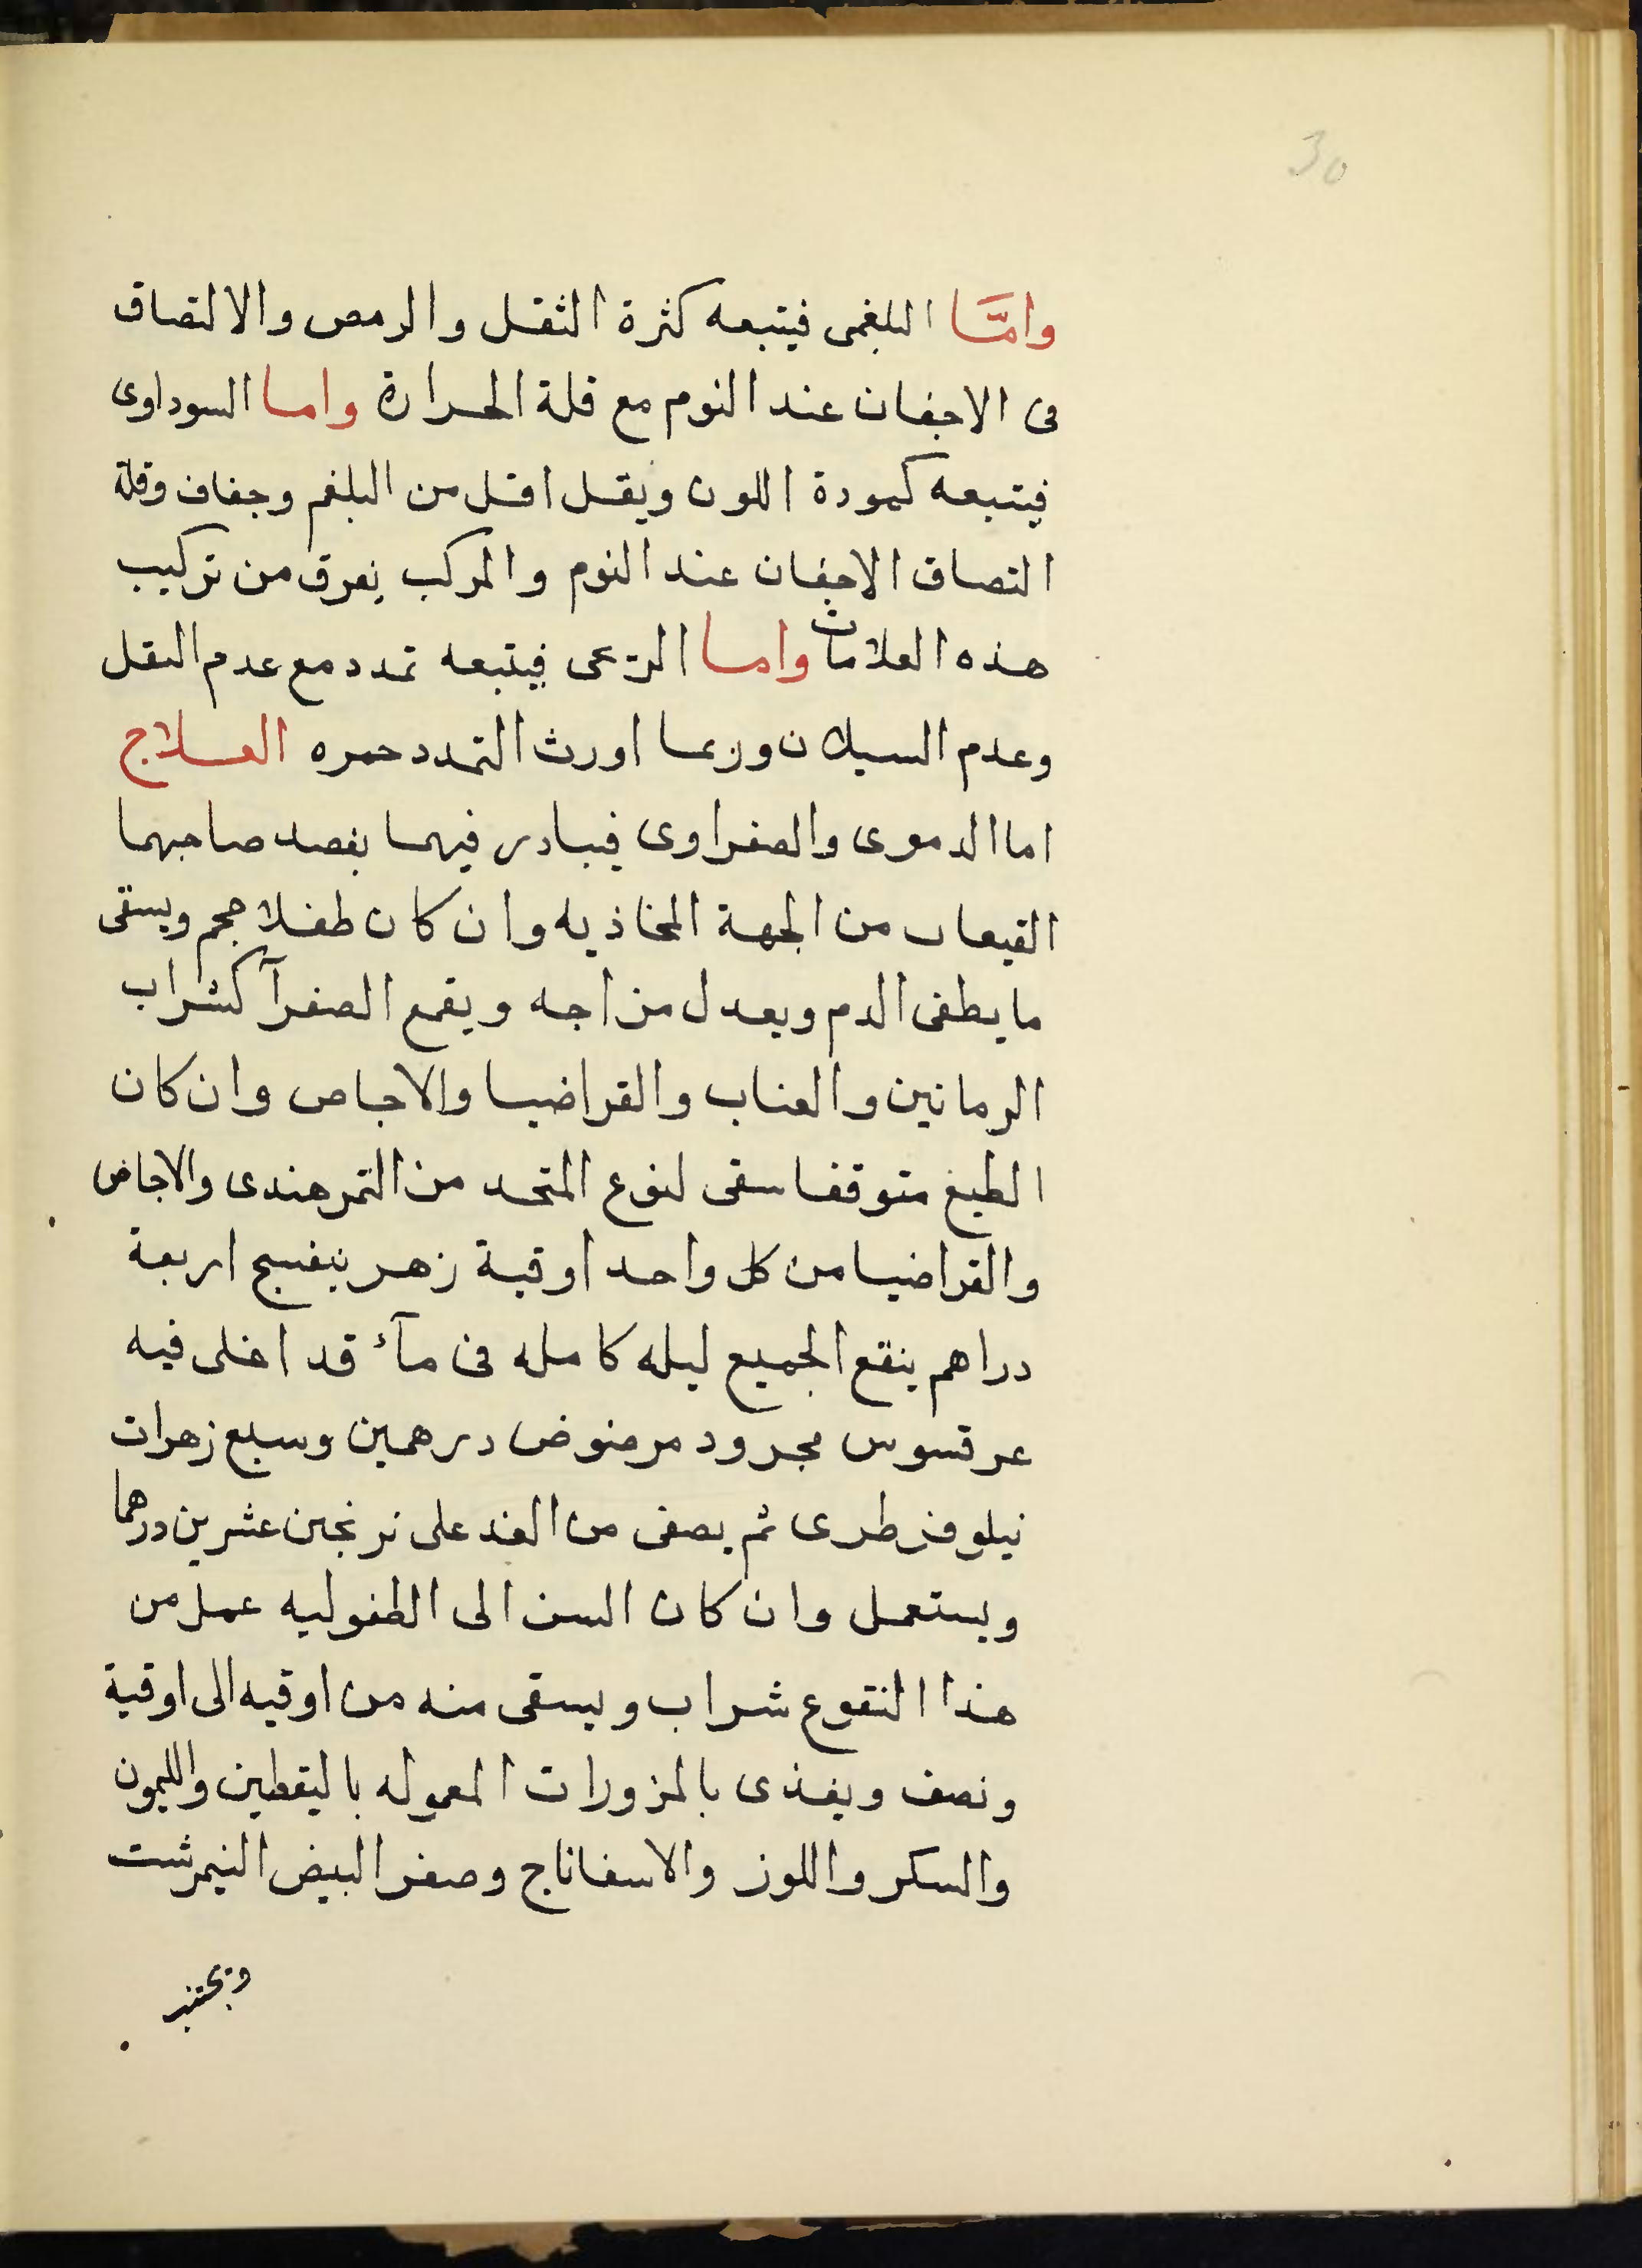 30
وامّا البلغمى فيتبعه كثرة الثقل والرمص والالتصاق
فى الاجفان عند النوم مع قلة الحرارة واما السوداوى
فيتبعه كمودة اللون وثقل اقل من البلغم وجفاف وقلة
التصاق الاجفان عند النوم والمركب يعرف من تركيب
هذه العلامات واما الريحى فيتبعه تمدد مع عدم الثقل
وعدم السيلان وربما اورث التمدد حمره العلاج
اما الدموى والصفراوى فيبادر فيهما بفصد صاحبهما
القيفال من الجهة المحاذيه وان كان طفلا حجم ويسقى
ما يطفى الدم ويعدل مزاجه ويقمع الصفرآ كشراب
الرمانين والعناب والقراضيا والاجاص وان كان
الطبع متوقفا سقى لنوع المتخد من التمرهندى والاجاص
والقراضيا من كل واحد اوقية زهر بنفسج اربعة
دراهم ينقع الجميع ليله كامله فى مآء قد اغلى فيه
عرقسوس مجرود مرضوض درهمين وسبع زهرات
نيلوفر طرى ثم يصفى من الغد على ترنجبن عشرين درهما
ويستعمل وان كان السن الى الطفوليه عمل من
هذا النقوع شراب ويسقى منه من اوقيه الى اوقية
ونصف ويغذى بالمزورات المعموله باليقطين والليمون
والسكر واللوز والاسفاناج وصفر البيض النيمرشت
ويجتنب